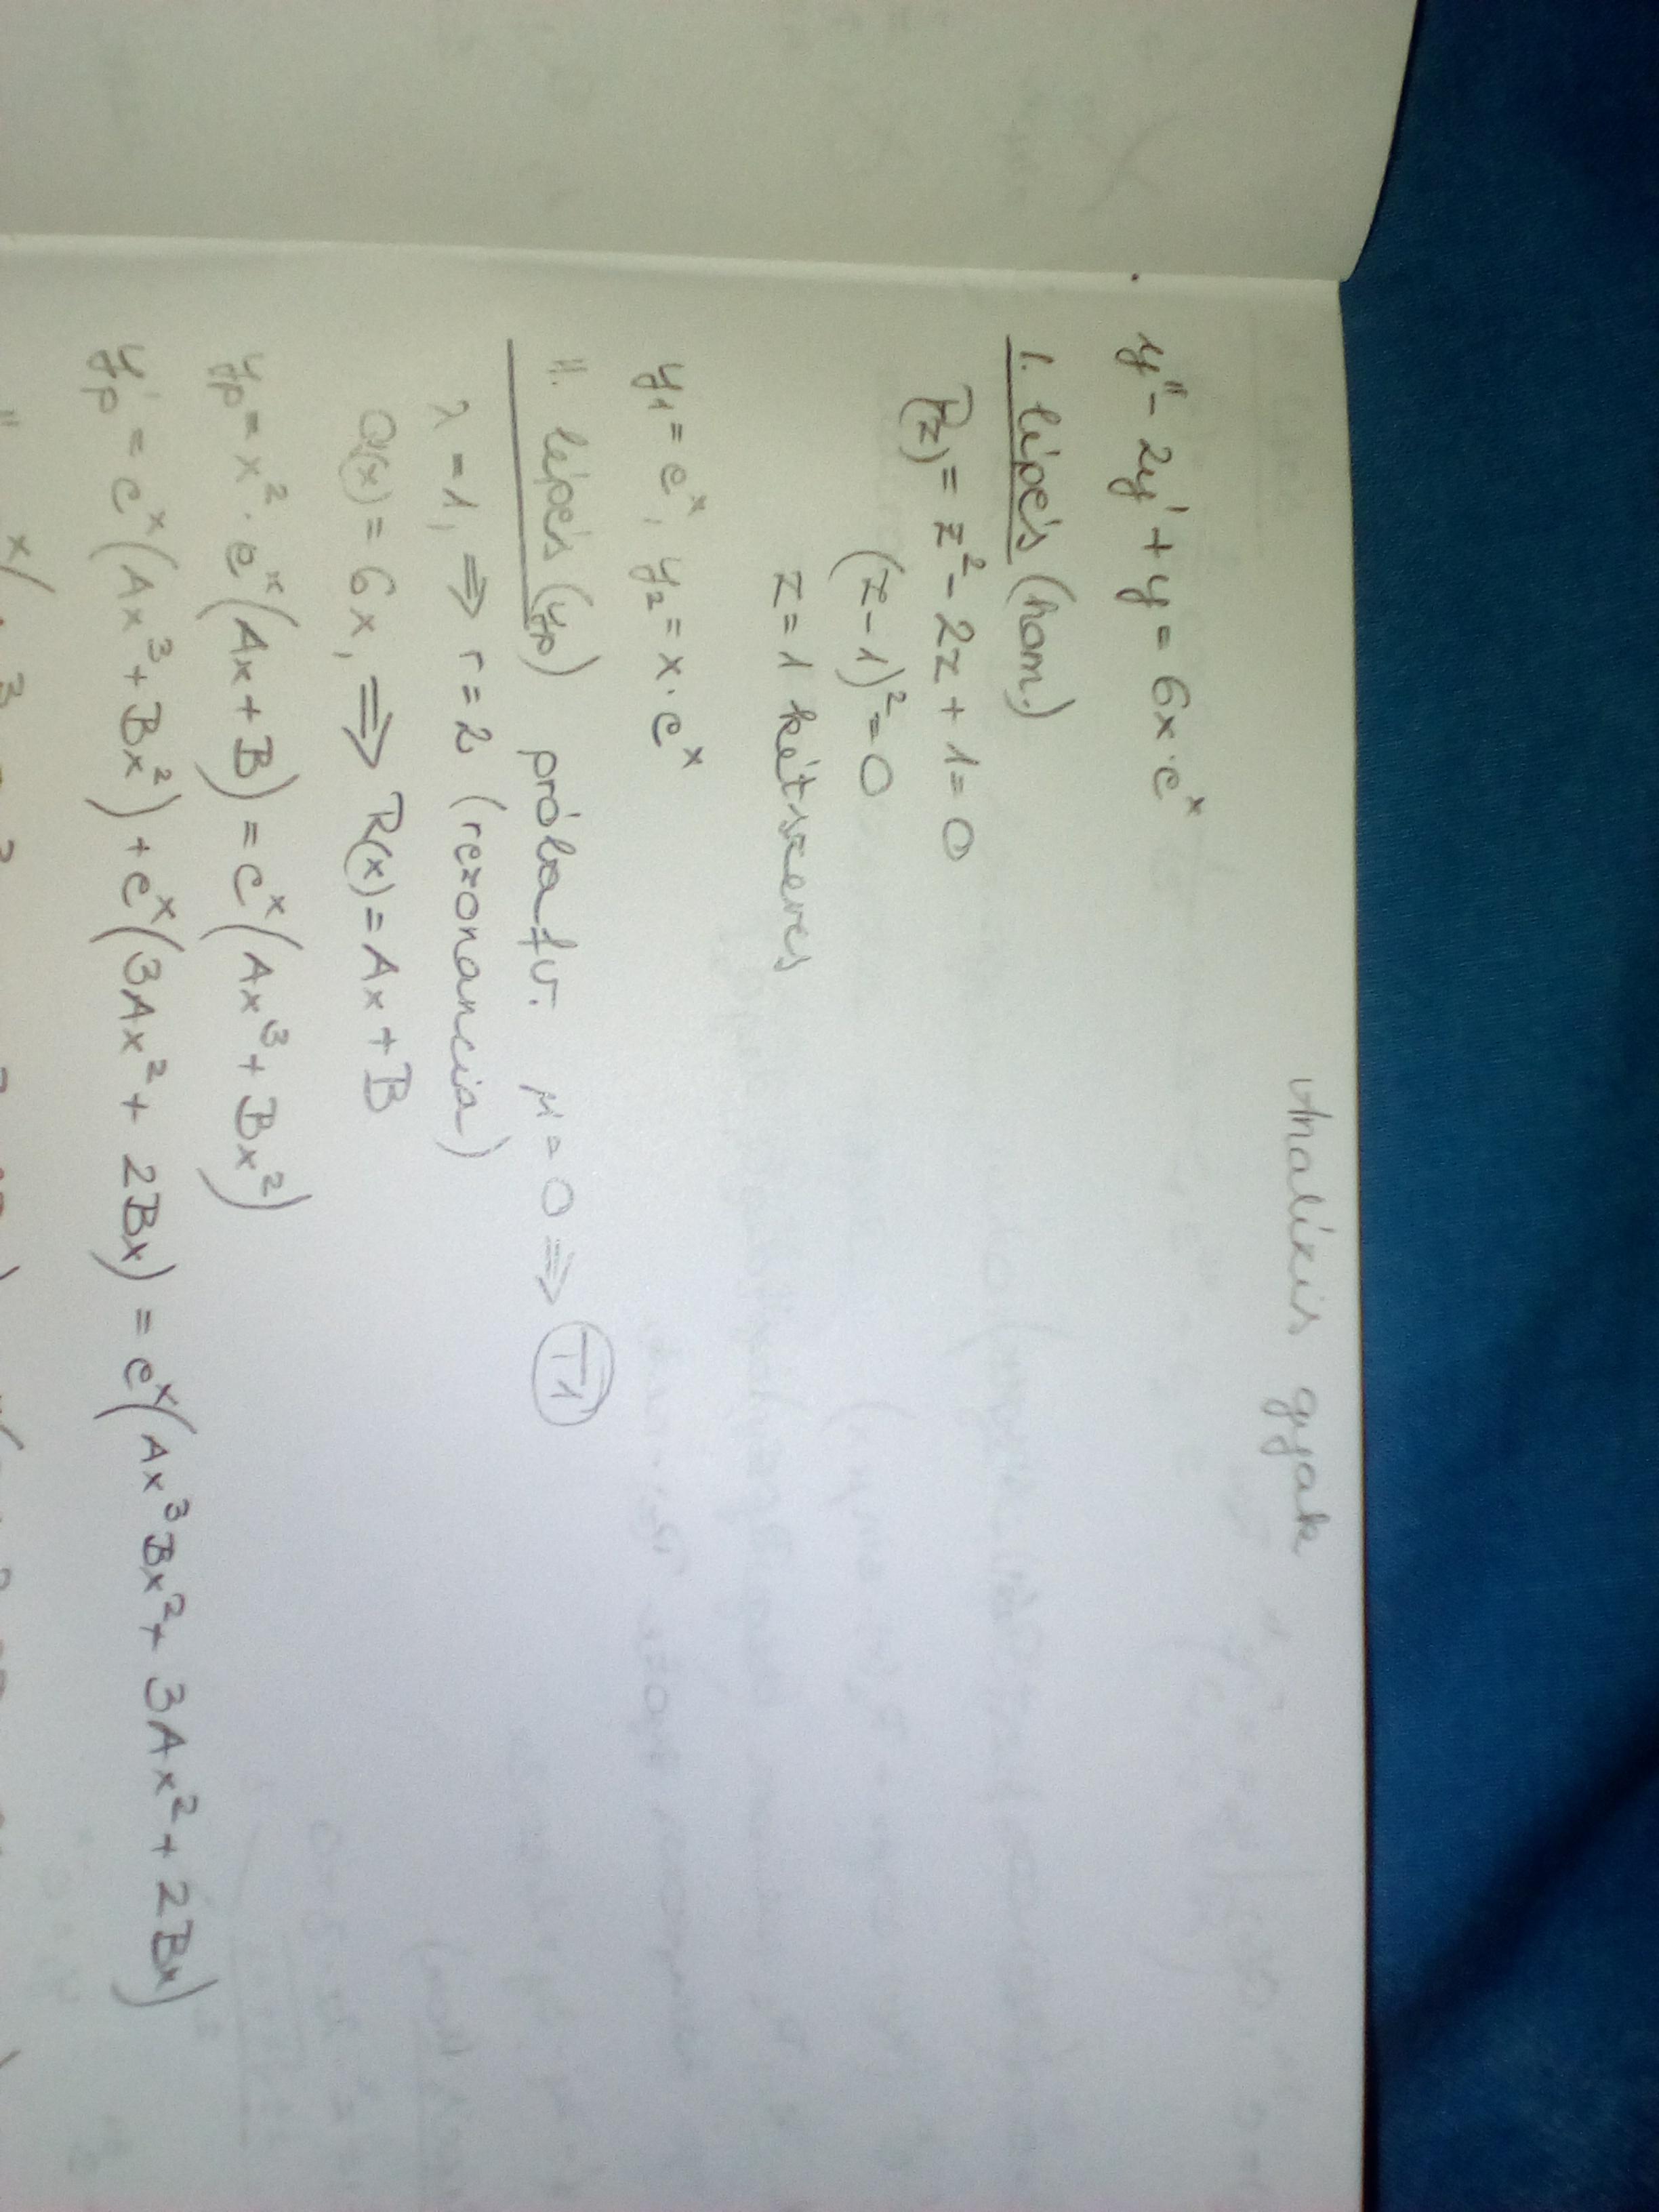 Analízis gyak
y'' - 2y' + y = 6x·e^x
I. lépés (hom.)
P(z) = z² - 2z + 1 = 0
(z-1)² = 0
z = 1 kétszeres
y₁ = e^x, y₂ = x·e^x
II. lépés (yp) próbafv. μ = 0 ⇒ T1
λ = 1, ⇒ r = 2 (rezonancia)
Q(x) = 6x, ⇒ R(x) = Ax + B
yp = x²·e^x(Ax + B) = e^x(Ax³ + Bx²)
yp' = e^x(Ax³ + Bx²) + e^x(3Ax² + 2Bx) = e^x(Ax³ Bx² + 3Ax² + 2Bx)